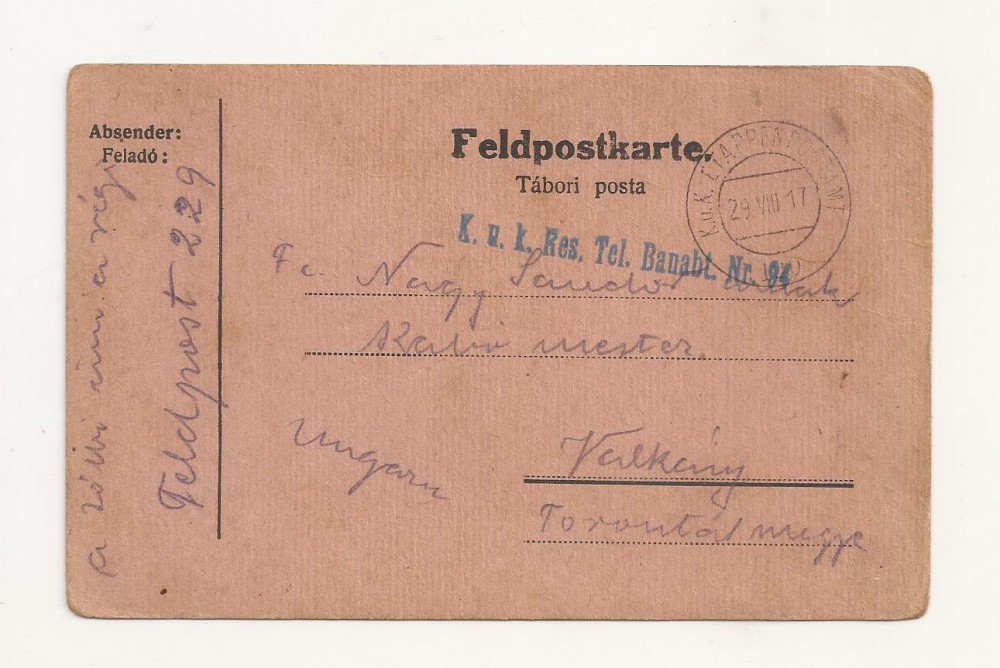 Absender:
Feladó:
a régi
Feldpost 229
Feldpostkarte.
Tábori posta
K.u.K. ETAPPENPOSTAMT
29. VIII 17
K. u. k. Res. Tel. Bauabt. Nr. 94
Nagy Sándor
mester
Ungarn
Valkány
Torontál megye